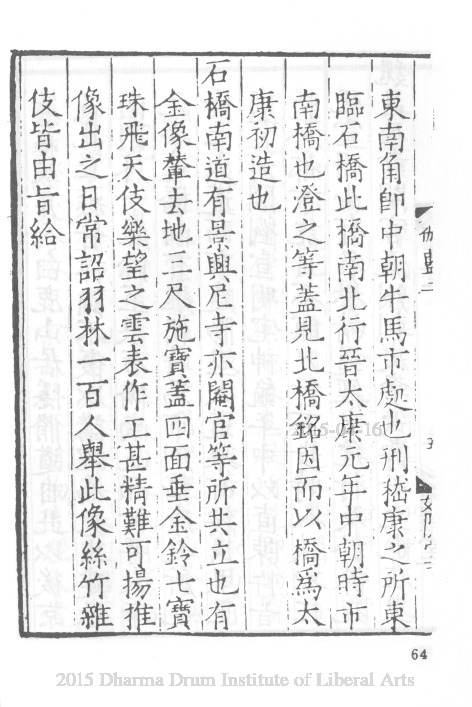 東南角即中朝牛馬市處也刑嵇康之所東
臨石橋此橋南北行晉太康元年中朝時市
南橋也澄之等蓋見北橋銘因而以橋為太
康初造也
石橋南道有景興尼寺亦閹官等所共立也有
金像輦去地三尺施寶蓋四面垂金鈴七寶
珠飛天伎樂望之雲表作工甚精難可揚推
像出之日常詔羽林一百人舉此像絲竹雜
伎皆由旨給
64
2015 Dharma Drum Institute of Liberal Arts